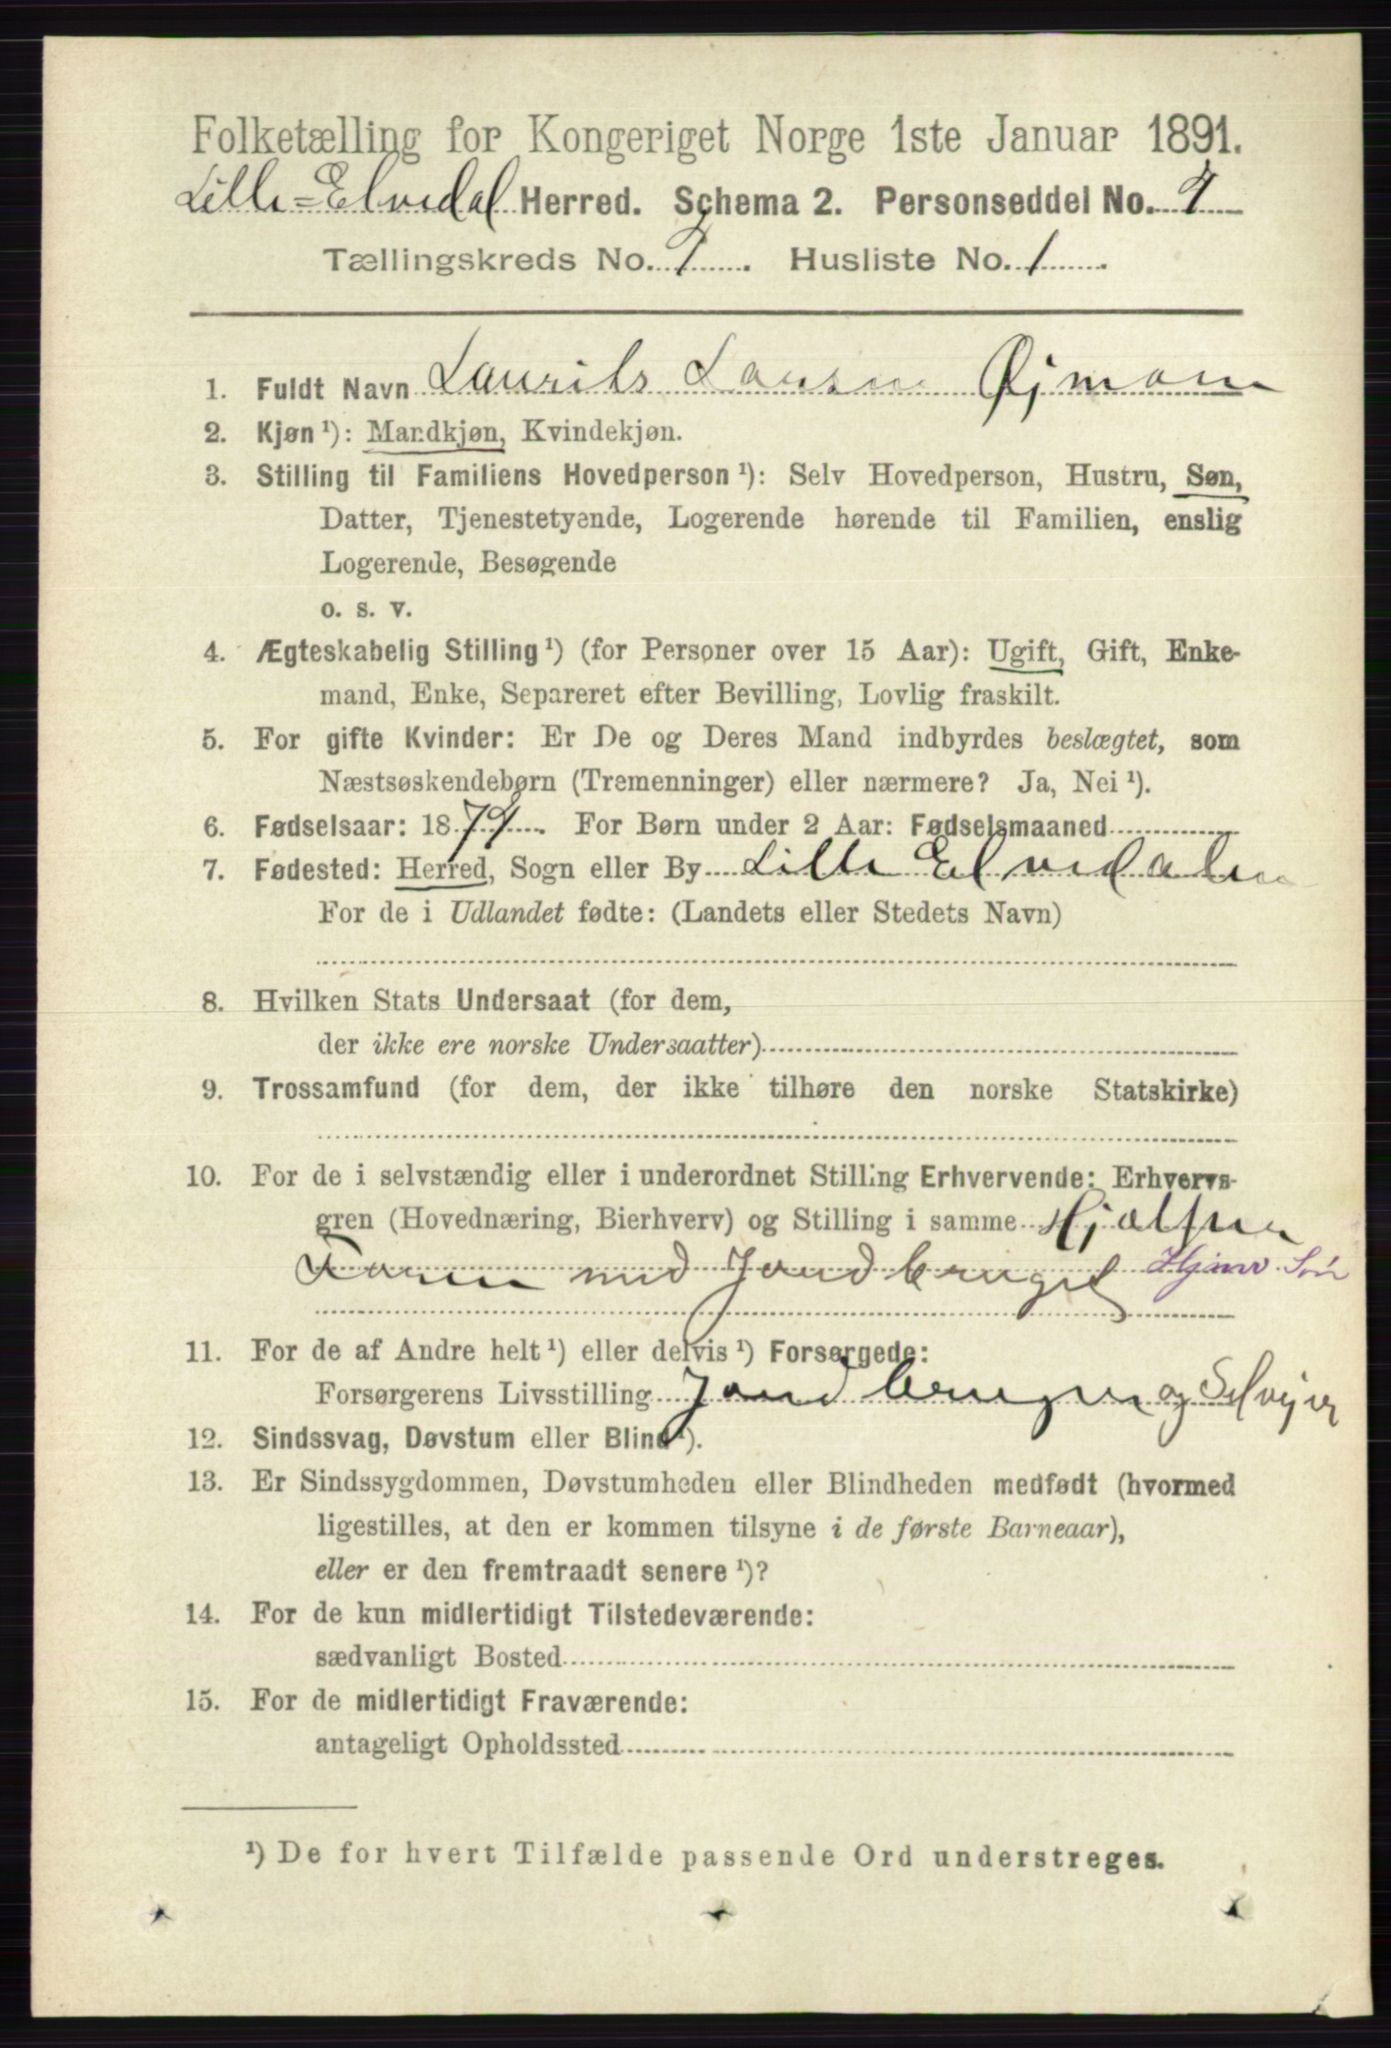 Folketælling for Kongeriget Norge 1ste Januar 1891.
Lille-Elvedal Herred. Schema 2. Personseddel No. 7
Tællingskreds No. 7. Husliste No. 1
1. Fuldt Navn Laurits Larsen Øjmoen
2. Kjøn ¹): Mandkjøn, Kvindekjøn.
3. Stilling til Familiens Hovedperson ¹): Selv Hovedperson, Hustru, Søn,
Datter, Tjenestetyende, Logerende hørende til Familien, enslig
Logerende, Besøgende
o. s. v.
4. Ægteskabelig Stilling ¹) (for Personer over 15 Aar): Ugift, Gift, Enke-
mand, Enke, Separeret efter Bevilling, Lovlig fraskilt.
5. For gifte Kvinder: Er De og Deres Mand indbyrdes beslægtet, som
Næstsøskendebørn (Tremenninger) eller nærmere? Ja, Nei ¹).
6. Fødselsaar: 1874. For Børn under 2 Aar: Fødselsmaaned
7. Fødested: Herred, Sogn eller By Lille Elvedalen
For de i Udlandet fødte: (Landets eller Stedets Navn)
8. Hvilken Stats Undersaat (for dem,
der ikke ere norske Undersaatter)
9. Trossamfund (for dem, der ikke tilhøre den norske Statskirke)
10. For de i selvstændig eller i underordnet Stilling Erhvervende: Erhvervs-
gren (Hovednæring, Bierhverv) og Stilling i samme Hjælper
Faren med Jordbruget Hjmv. Søn
11. For de af Andre helt ¹) eller delvis ¹) Forsørgede:
Forsørgerens Livsstilling Jordbruger og Selvejer
12. Sindssvag, Døvstum eller Blind ¹).
13. Er Sindssygdommen, Døvstumheden eller Blindheden medfødt (hvormed
ligestilles, at den er kommen tilsyne i de første Barneaar),
eller er den fremtraadt senere ¹)?
14. For de kun midlertidigt Tilstedeværende:
sædvanligt Bosted
15. For de midlertidigt Fraværende:
antageligt Opholdssted
¹) De for hvert Tilfælde passende Ord understreges.